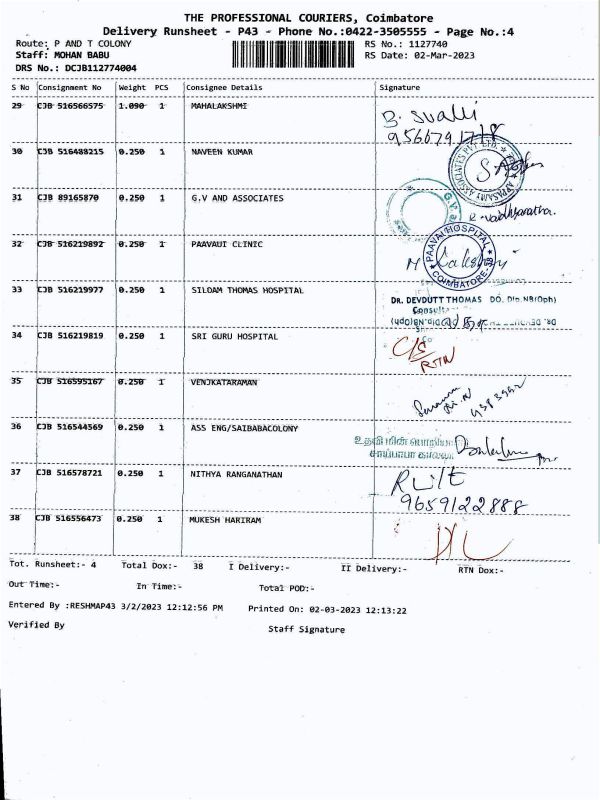 THE PROFESSIONAL COURIERS, Coimbatore
Delivery Runsheet - P43 - Phone No.:0422-3505555 - Page No.:4
Route: P AND T COLONY RS No.: 1127740
Staff: MOHAN BABU RS Date: 02-Mar-2023
DRS No.: DCJB112774004
S No Consignment No Weight PCS Consignee Details Signature
29 CJB 516566575 1.090 1 MAHALAKSHMI
9566791718
30 CJB 516488215 0.250 1 NAVEEN KUMAR
31 CJB 89165870 0.250 1 G.V AND ASSOCIATES
32 CJB 516219892 0.250 1 PAAVAUI CLINIC
PAAVAI HOSPITAL
COIMBATORE
33 CJB 516219977 0.250 1 SILOAM THOMAS HOSPITAL
DR. DEVDUTT THOMAS DO. Dip.NB(Oph)
34 CJB 516219819 0.250 1 SRI GURU HOSPITAL
C/S
RTN
35 CJB 516595167 0.250 1 VENJKATARAMAN
36 CJB 516544569 0.250 1 ASS ENG/SAIBABACOLONY
உதவி மின் பொறியா
சாய்பாபா காலனி
37 CJB 516578721 0.250 1 NITHYA RANGANATHAN
9659122888
38 CJB 516556473 0.250 1 MUKESH HARIRAM
D/L
Tot. Runsheet:- 4 Total Dox:- 38 I Delivery:- II Delivery:- RTN Dox:-
Out Time:- In Time:- Total POD:-
Entered By :RESHMAP43 3/2/2023 12:12:56 PM Printed On: 02-03-2023 12:13:22
Verified By Staff Signature